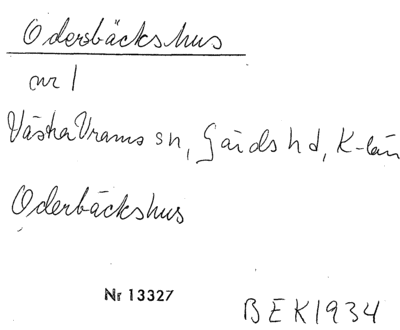 Odersbäckshus
nr 1
Västra Vrams sn, Gärds hd, K-län
Oderbäckshus
Nr 13327
BEK1934